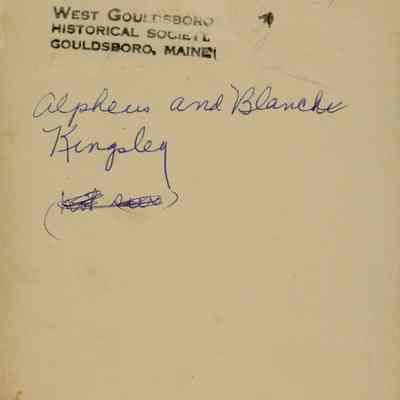 WEST GOULDSBORO
HISTORICAL SOCIETY
GOULDSBORO, MAINE
Alpheus and Blanche
Kingsley